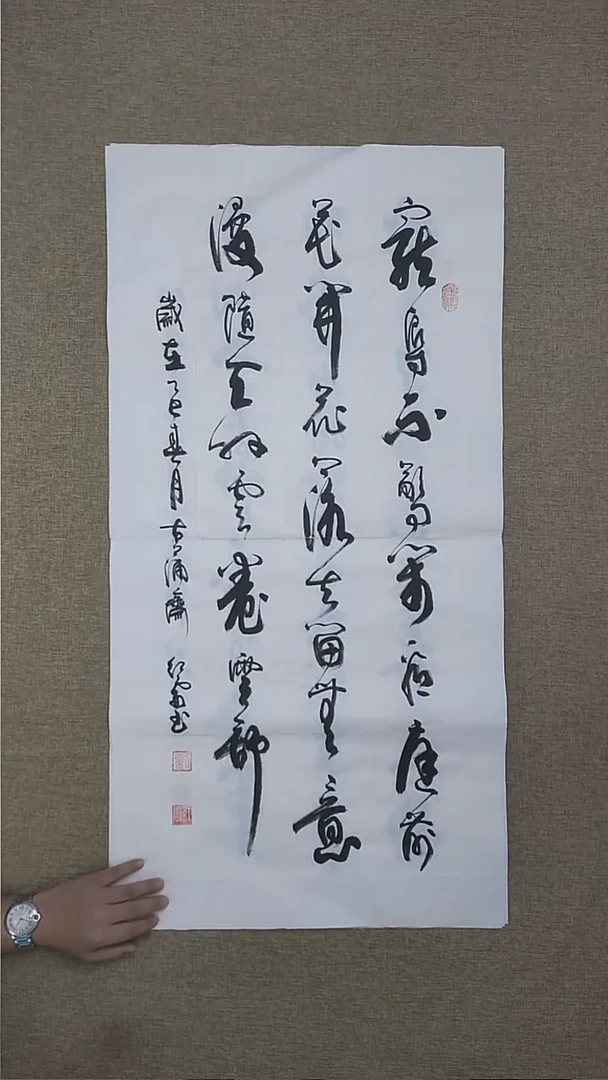 寵辱不驚閑看庭前
花開花落去留無意
漫隨天外雲卷雲舒
歲在乙巳春月古涌齋